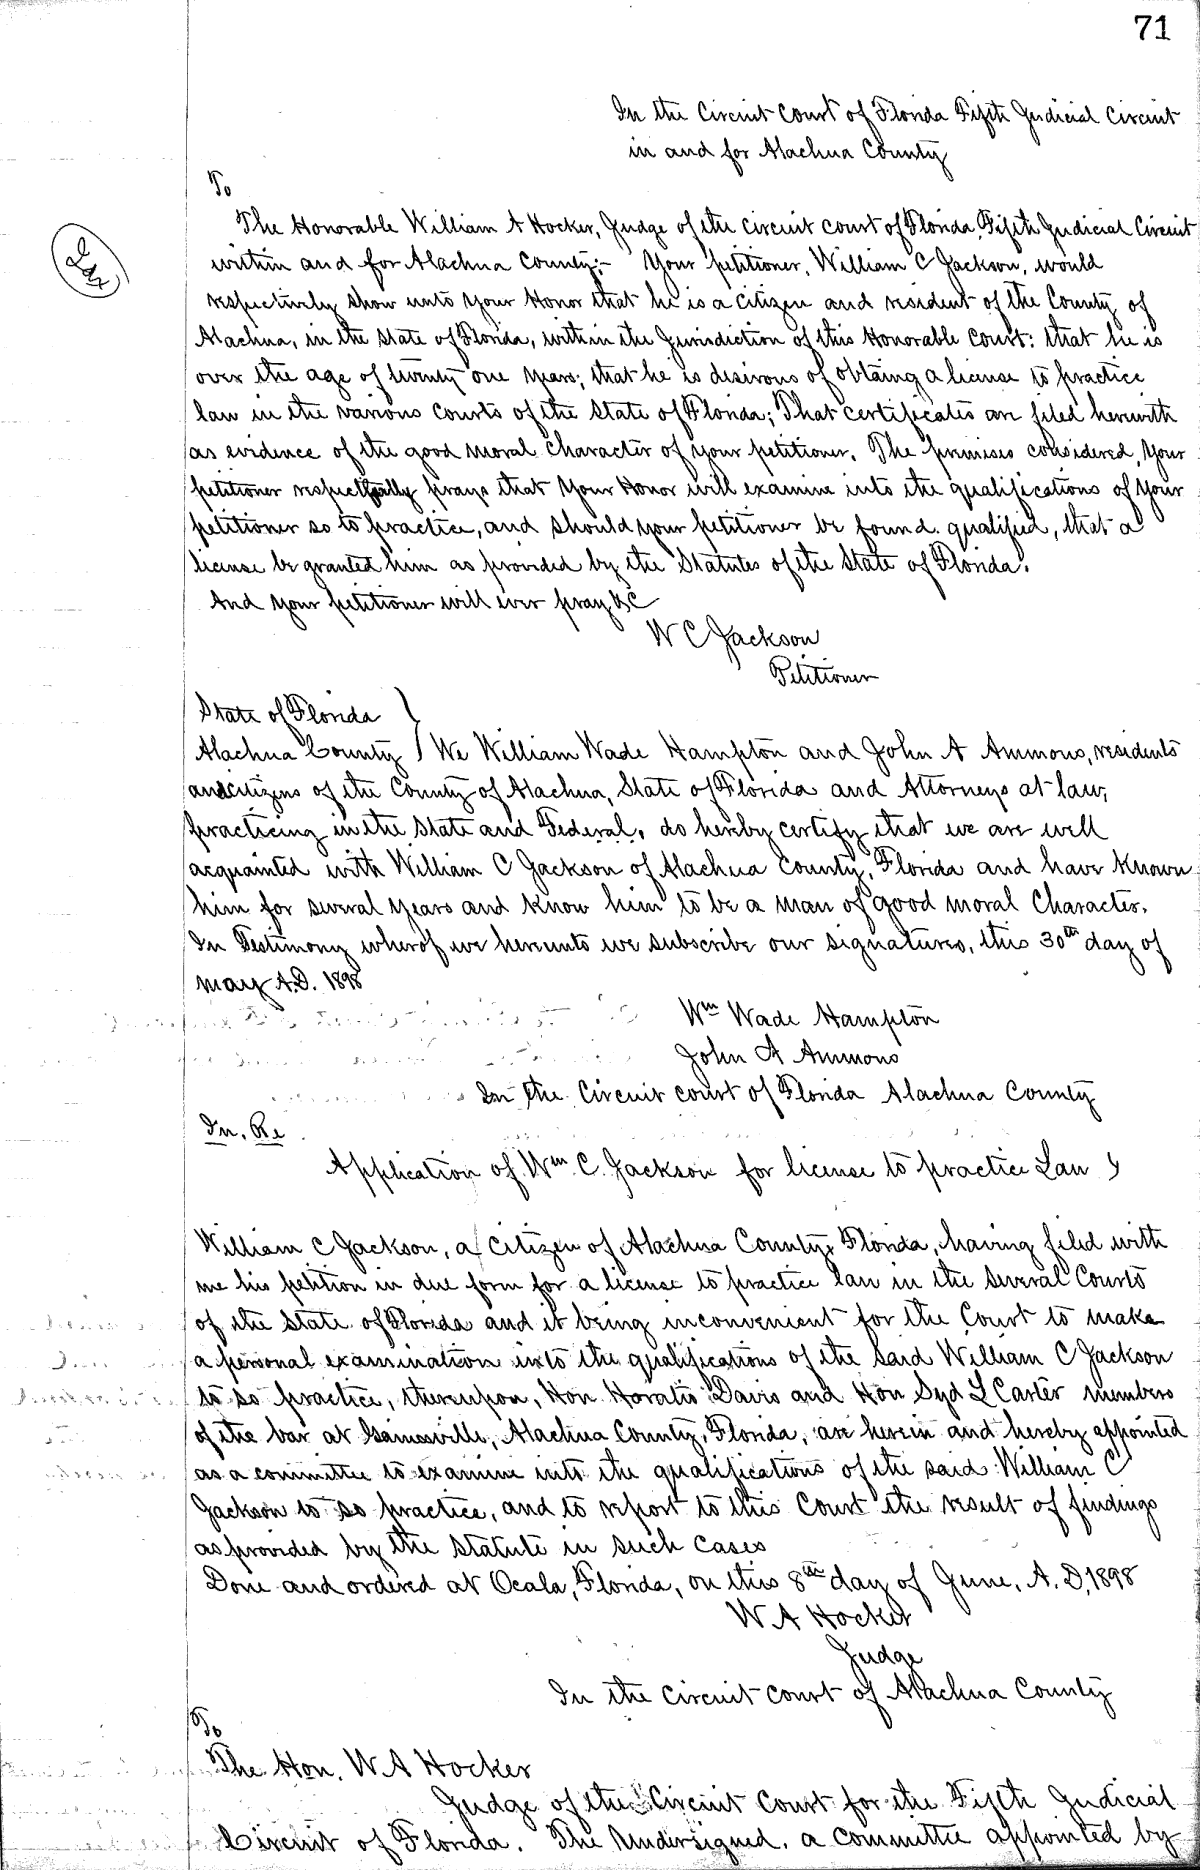 71
In the Circuit Court of Florida Fifth Judicial Circuit
in and for Alachua County
To
The Honorable William A Hocker, Judge of the circuit court of Florida, Fifth Judicial Circuit
within and for Alachua County;- Your petitioner, William C Jackson, would
respectively show unto Your Honor that he is a citizen and resident of the County of
Alachua, in the State of Florida, within the Jurisdiction of this Honorable court: that he is
over the age of twenty one years; that he is desirous of obtaing a license to practice
law in the various courts of the State of Florida; That certificates are filed herewith
as evidence of the good moral character of your petitioner. The premises considered, Your
petitioner respectfully prays that Your Honor will examine into the qualifications of Your
petitioner so to practice, and should your petitioner be found qualified, that a
license be granted him as provided by the Statutes of the State of Florida.
And your petitioner will ever pray &c
W C Jackson
Petitioner
State of Florida }
Alachua County } We William Wade Hampton and John A Ammons, residents
and citizens of the County of Alachua, State of Florida and Attorneys at law,
practicing in the State and Federal, do hereby certify that we are well
acquainted with William C Jackson of Alachua County, Florida and have Known
him for several years and know him to be a man of good moral Character.
In Testimony wherof we hereunto we subscribe our signatures, this 30th day of
May A.D. 1898
Wm Wade Hampton
John A Ammons
In the Circuit court of Florida Alachua County
In. Re
Application of Wm C. Jackson for license to practice Law }
William C Jackson, a citizen of Alachua County, Florida, having filed with
me his petition in due form for a license to practice law in the several Courts
of the State of Florida and it being inconvenient for the Court to make
a personal examination into the qualifications of the said William C Jackson
to so practice, thereupon, Hon. Horatio Davis and Hon Syd L Carter members
of the bar at Gainesville, Alachua County, Florida, are herein and hereby appointed
as a committee to examine into the qualifications of the said William C
Jackson to so practice, and to report to this Court the result of findings
as provided by the Statute in such Cases
Done and ordered at Ocala, Florida, on this 8th day of June, A.D, 1898
W A Hocker
Judge
In the Circuit court of Alachua County
To
The Hon. W A Hocker
Judge of the Circuit Court for the Fifth Judicial
Circuit of Florida. The Undersigned, a committee appointed by